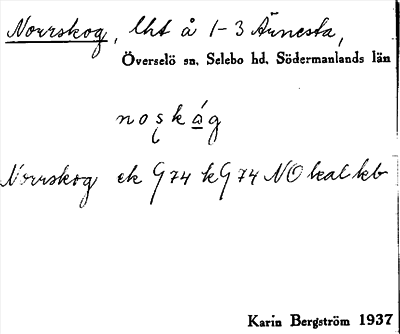 Norrskog, lht å 1-3 Ärnesta,
Överselö sn, Selebo hd, Södermanlands län
noʂkág
Norrskog ek G 74 kG 74 NO kal kb
Karin Bergström 1937